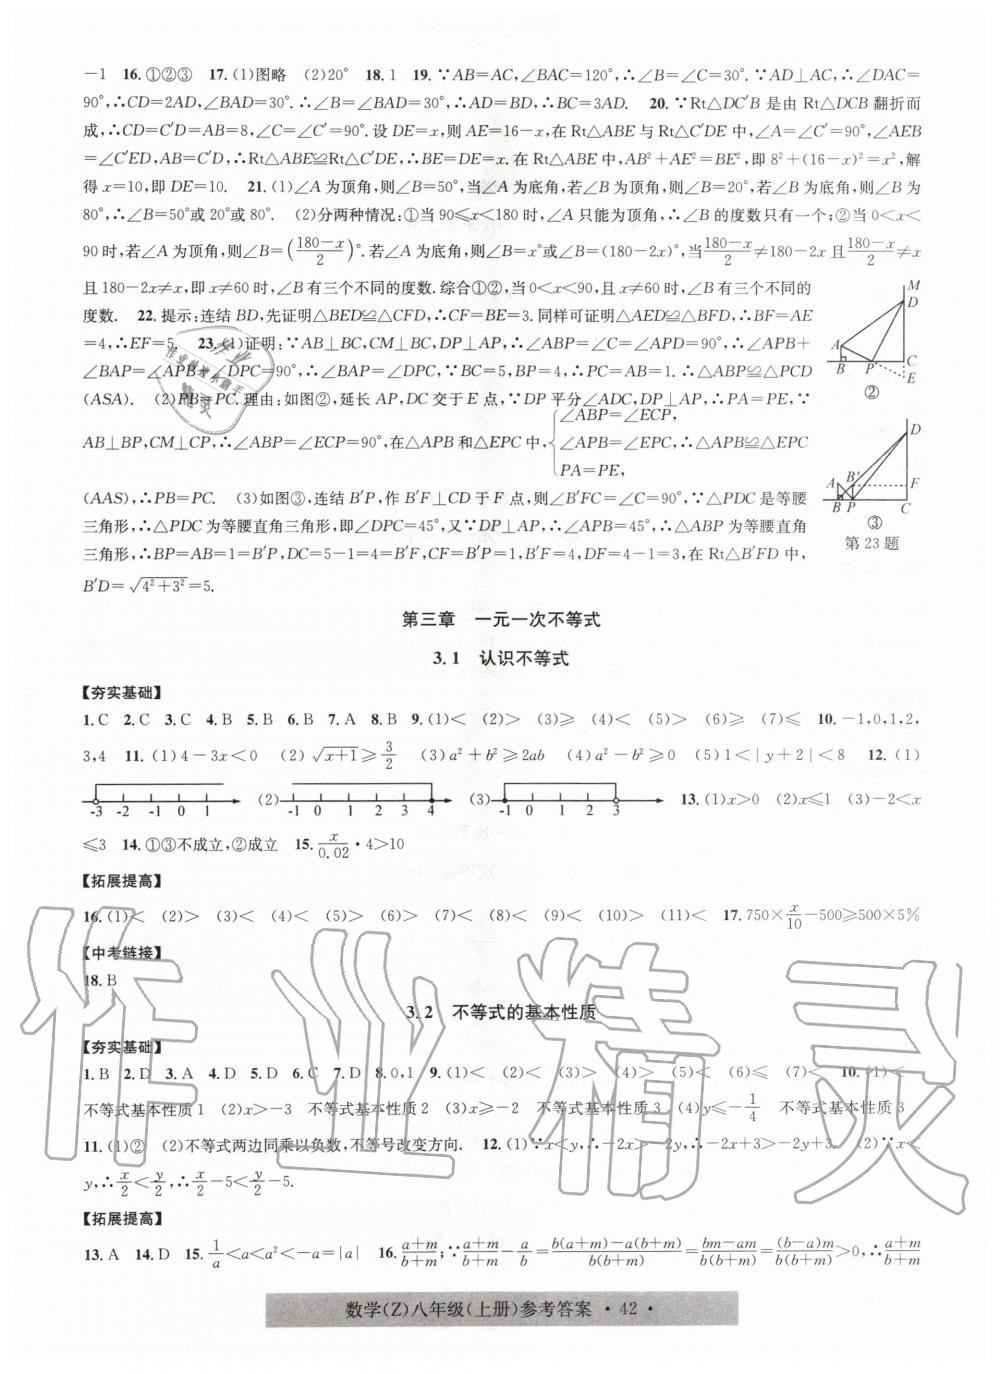 -1　16.①②③　17.(1)图略　(2)20°　18.1　19.∵AB=AC,∠BAC=120°,∴∠B=∠C=30°.∵AD⊥AC,∴∠DAC=
90°,∴CD=2AD,∠BAD=30°.∴∠B=∠BAD=30°,∴AD=BD,∴BC=3AD.　20.∵Rt△DC′B是由Rt△DCB翻折而
成,∴CD=C′D=AB=8,∠C=∠C′=90°.设DE=x,则AE=16-x,在Rt△ABE与Rt△C′DE中,∠A=∠C′=90°,∠AEB
=∠C′ED,AB=C′D,∴Rt△ABE≌Rt△C′DE,∴BE=DE=x.在Rt△ABE中,AB²+AE²=BE²,即8²+(16-x)²=x²,解
得x=10,即DE=10.　21.(1)∠A为顶角,则∠B=50°,当∠A为底角,若∠B为顶角,则∠B=20°,若∠B为底角,则∠B为
80°,∴∠B=50°或20°或80°.　(2)分两种情况:①当90≤x<180时,∠A只能为顶角,∴∠B的度数只有一个;②当0<x<
90时,若∠A为顶角,则∠B=((180-x)/2)°.若∠A为底角,则∠B=x°或∠B=(180-2x)°,当(180-x)/2≠180-2x且(180-x)/2≠x
且180-2x≠x,即x≠60时,∠B有三个不同的度数.综合①②,当0<x<90,且x≠60时,∠B有三个不同的
度数.　22.提示:连结BD,先证明△BED≌△CFD,∴CF=BE=3.同样可证明△AED≌△BFD,∴BF=AE
=4,∴EF=5.　23.(1)证明:∵AB⊥BC,CM⊥BC,DP⊥AP,∴∠ABP=∠C=∠APD=90°,∴∠APB+
∠BAP=∠APB+∠DPC=90°,∴∠BAP=∠DPC,∵BC=5,BP=4,∴PC=AB=1.∴△ABP≌△PCD
(ASA).　(2)PB=PC.理由:如图②,延长AP,DC交于E点,∵DP平分∠ADC,DP⊥AP,∴PA=PE,∵
AB⊥BP,CM⊥CP,∴∠ABP=∠ECP=90°,在△APB和△EPC中,{∠ABP=∠ECP, ∠APB=∠EPC, PA=PE, ∴△APB≌△EPC
(AAS),∴PB=PC.　(3)如图③,连结B′P,作B′F⊥CD于F点,则∠B′FC=∠C=90°,∵△PDC是等腰
三角形,∴△PDC为等腰直角三角形,即∠DPC=45°,又∵DP⊥AP,∴∠APB=45°,∴△ABP为等腰直角
三角形,∴BP=AB=1=B′P,DC=5-1=4=B′F,CF=B′P=1,B′F=4,DF=4-1=3,在Rt△B′FD中,
B′D=√(4²+3²)=5.
M
D
A
B　P　C
E
②
D
A　B′　F
B　P　C
③
第23题
第三章　一元一次不等式
3.1　认识不等式
【夯实基础】
1.C　2.C　3.C　4.B　5.B　6.B　7.A　8.B　9.(1)<　(2)>　(3)≥　(4)<　(5)>　(6)≥　(7)≤　10.-1,0,1,2,
3,4　11.(1)4-3x<0　(2)√(x+1)≥3/2　(3)a²+b²≥2ab　(4)a²-b²≥0　(5)1<|y+2|<8　12.(1)
-3 -2 -1 0 1　(2) -1 0 1 2 3 4　(3) -1 0 1 2 3　13.(1)x>0　(2)x≤1　(3)-2<x
≤3　14.①③不成立,②成立　15.x/0.02·4>10
【拓展提高】
16.(1)<　(2)>　(3)<　(4)<　(5)>　(6)<　(7)>　(8)<　(9)<　(10)>　(11)<　17.750×x/10-500≥500×5%
【中考链接】
18.B
3.2　不等式的基本性质
【夯实基础】
1.B　2.D　3.A　4.D　5.D　6.C　7.D　8.0,1　9.(1)<　(2)>　(3)>　(4)>　(5)<　(6)≤　(7)<　10.(1)<
不等式基本性质1　(2)x>-3　不等式基本性质2　(3)x≥-2　不等式基本性质3　(4)y≤-1/4　不等式基本性质3
11.(1)②　(2)不等式两边同乘以负数,不等号改变方向.　12.(1)∵x<y,∴-2x>-2y,∴-2x+3>-2y+3.　(2)∵x<
y,∴x/2<y/2,∴x/2-5<y/2-5.
【拓展提高】
13.A　14.D　15.1/a<a<a²<-a=|a|　16.(a+m)/(b+m);∵(a+m)/(b+m)-a/b=(b(a+m)-a(b+m))/(b(b+m))=(bm-am)/(b(b+m))=((b-a)m)/(b(b+m))>0,∴(a+m)/(b+m)
数学(Z)八年级(上册)参考答案 ·42·
作业精灵